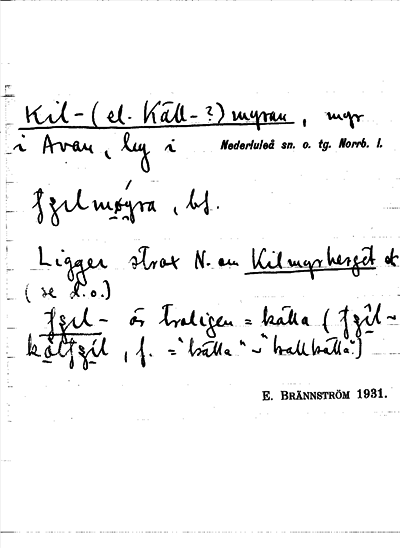 Kil-(el. Käll-?)myran, myr
i Avan, by i Nederluleå sn. o. tg. Norrb. l.
bf.
Ligger strax N. om Kilmyrberget
(se d.o.)
är troligen = källa (
, f. = "källa" ~ "kallkälla")
E. BRÄNNSTRÖM 1931.